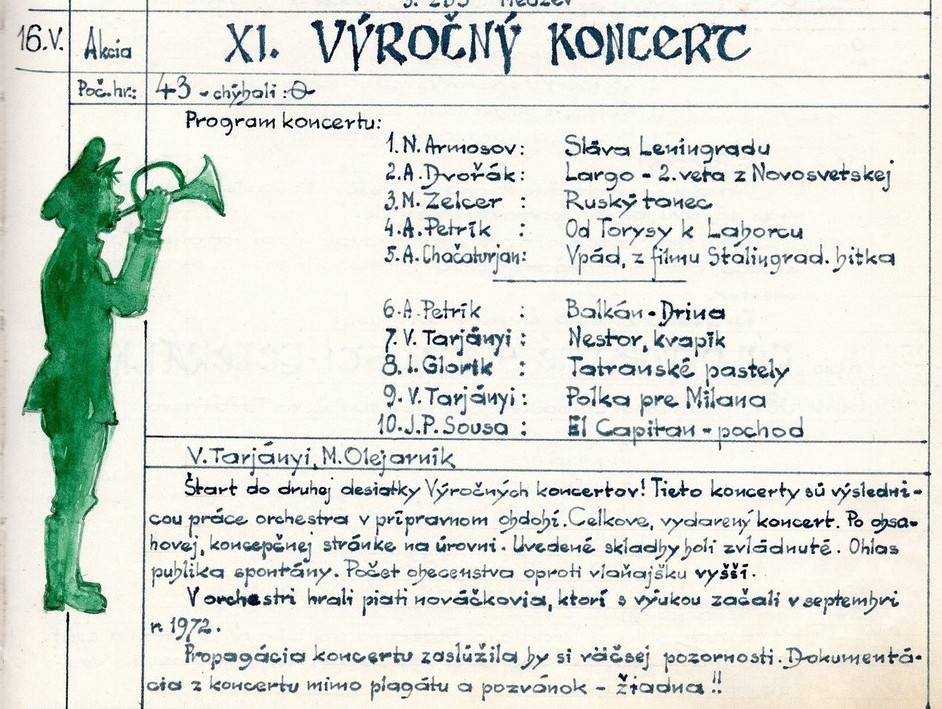 3. ZDŠ Medzev
16.V. Akcia XI. VÝROČNÝ KONCERT
Poč.hr.: 43 - chýbali: 0
Program koncertu:
1. N. Armosov: Sláva Leningradu
2. A. Dvořák: Largo - 2. veta z Novosvetskej
3. M. Zelcer : Ruský tanec
4. A. Petrík : Od Torysy k Laborcu
5. A. Chačaturjan: Vpád, z filmu Stalingrad. bitka
6. A. Petrík : Balkán - Drina
7. V. Tarjányi : Nestor, kvapík
8. I. Glorík : Tatranské pastely
9. V. Tarjányi : Polka pre Milana
10. J.P. Sousa : El Capitan - pochod
V. Tarjányi, M. Olejarník
Štart do druhej desiatky Výročných koncertov! Tieto koncerty sú výsledni-
cou práce orchestra v prípravnom období. Celkove, vydarený koncert. Po obsa-
hovej, koncepčnej stránke na úrovni. Uvedené skladby boli zvládnuté. Ohlas
publika spontány. Počet obecenstva oproti vlaňajšku vyšší.
V orchestri hrali piati nováčkovia, ktorí s výukou začali v septembri
r. 1972.
Propagácia koncertu zaslúžila by si väčsej pozornosti. Dokumentá-
cia z koncertu mimo plagátu a pozvánok - žiadna !!